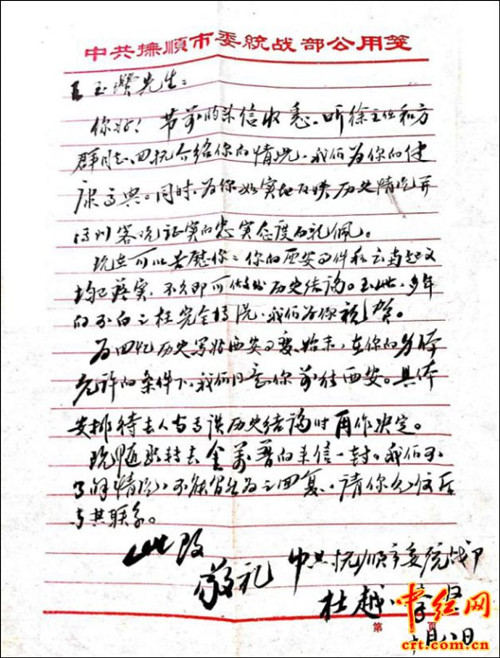 中共撫順市委統战部公用箋
王玉瓒先生：
你好！节前的来信收悉。听徐主任和方
群同志回抚介绍你的情况，我们为你的健
康高兴。同时为你如实地反映历史情况
证实的忠实态度而礼佩。
现在可以告慰你：你的西安
均已落实，不久即可 历史结论。至此，多年
的不白之 完全 ，我们为你祝贺。
为回忆历史写好西安事变始末，在你的身体
允许的条件下，我们同意你前往西安。具体
安排待去人与你谈历史结论时再作决定。
现随此转去金 的来信一封。我们不
了解情况，不能 为之回复，请你允收后
与其联系。
此致
敬礼
中共抚顺市委统战部
杜越
月八日
第
中红网
crt.com.cn